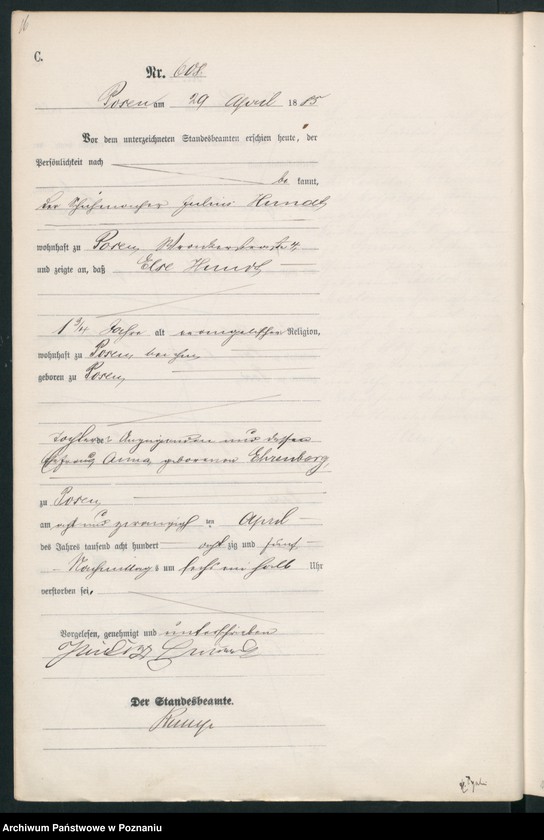 16
C.
Nr. 608.
Posen am 29 April 1885
Vor dem unterzeichneten Standesbeamten erschien heute, der
Persönlichkeit nach
be kannt,
der Schuhmacher Julius Hundt
wohnhaft zu Posen, 4,
und zeigte an, daß Else Hundt
1 3/4 Jahre alt evangelischer Religion,
wohnhaft zu Posen bei ihm
geboren zu Posen,
Tochter des Anzeigenden und dessen
Ehefrau Anna geborenen Ehrenberg,
zu Posen,
am acht und zwanzigsten April
des Jahres tausend acht hundert acht zig und fünf
Nachmittags um sechs ein halb Uhr
verstorben sei.
Vorgelesen, genehmigt und unterschrieben
Der Standesbeamte.
Archiwum Państwowe w Poznaniu